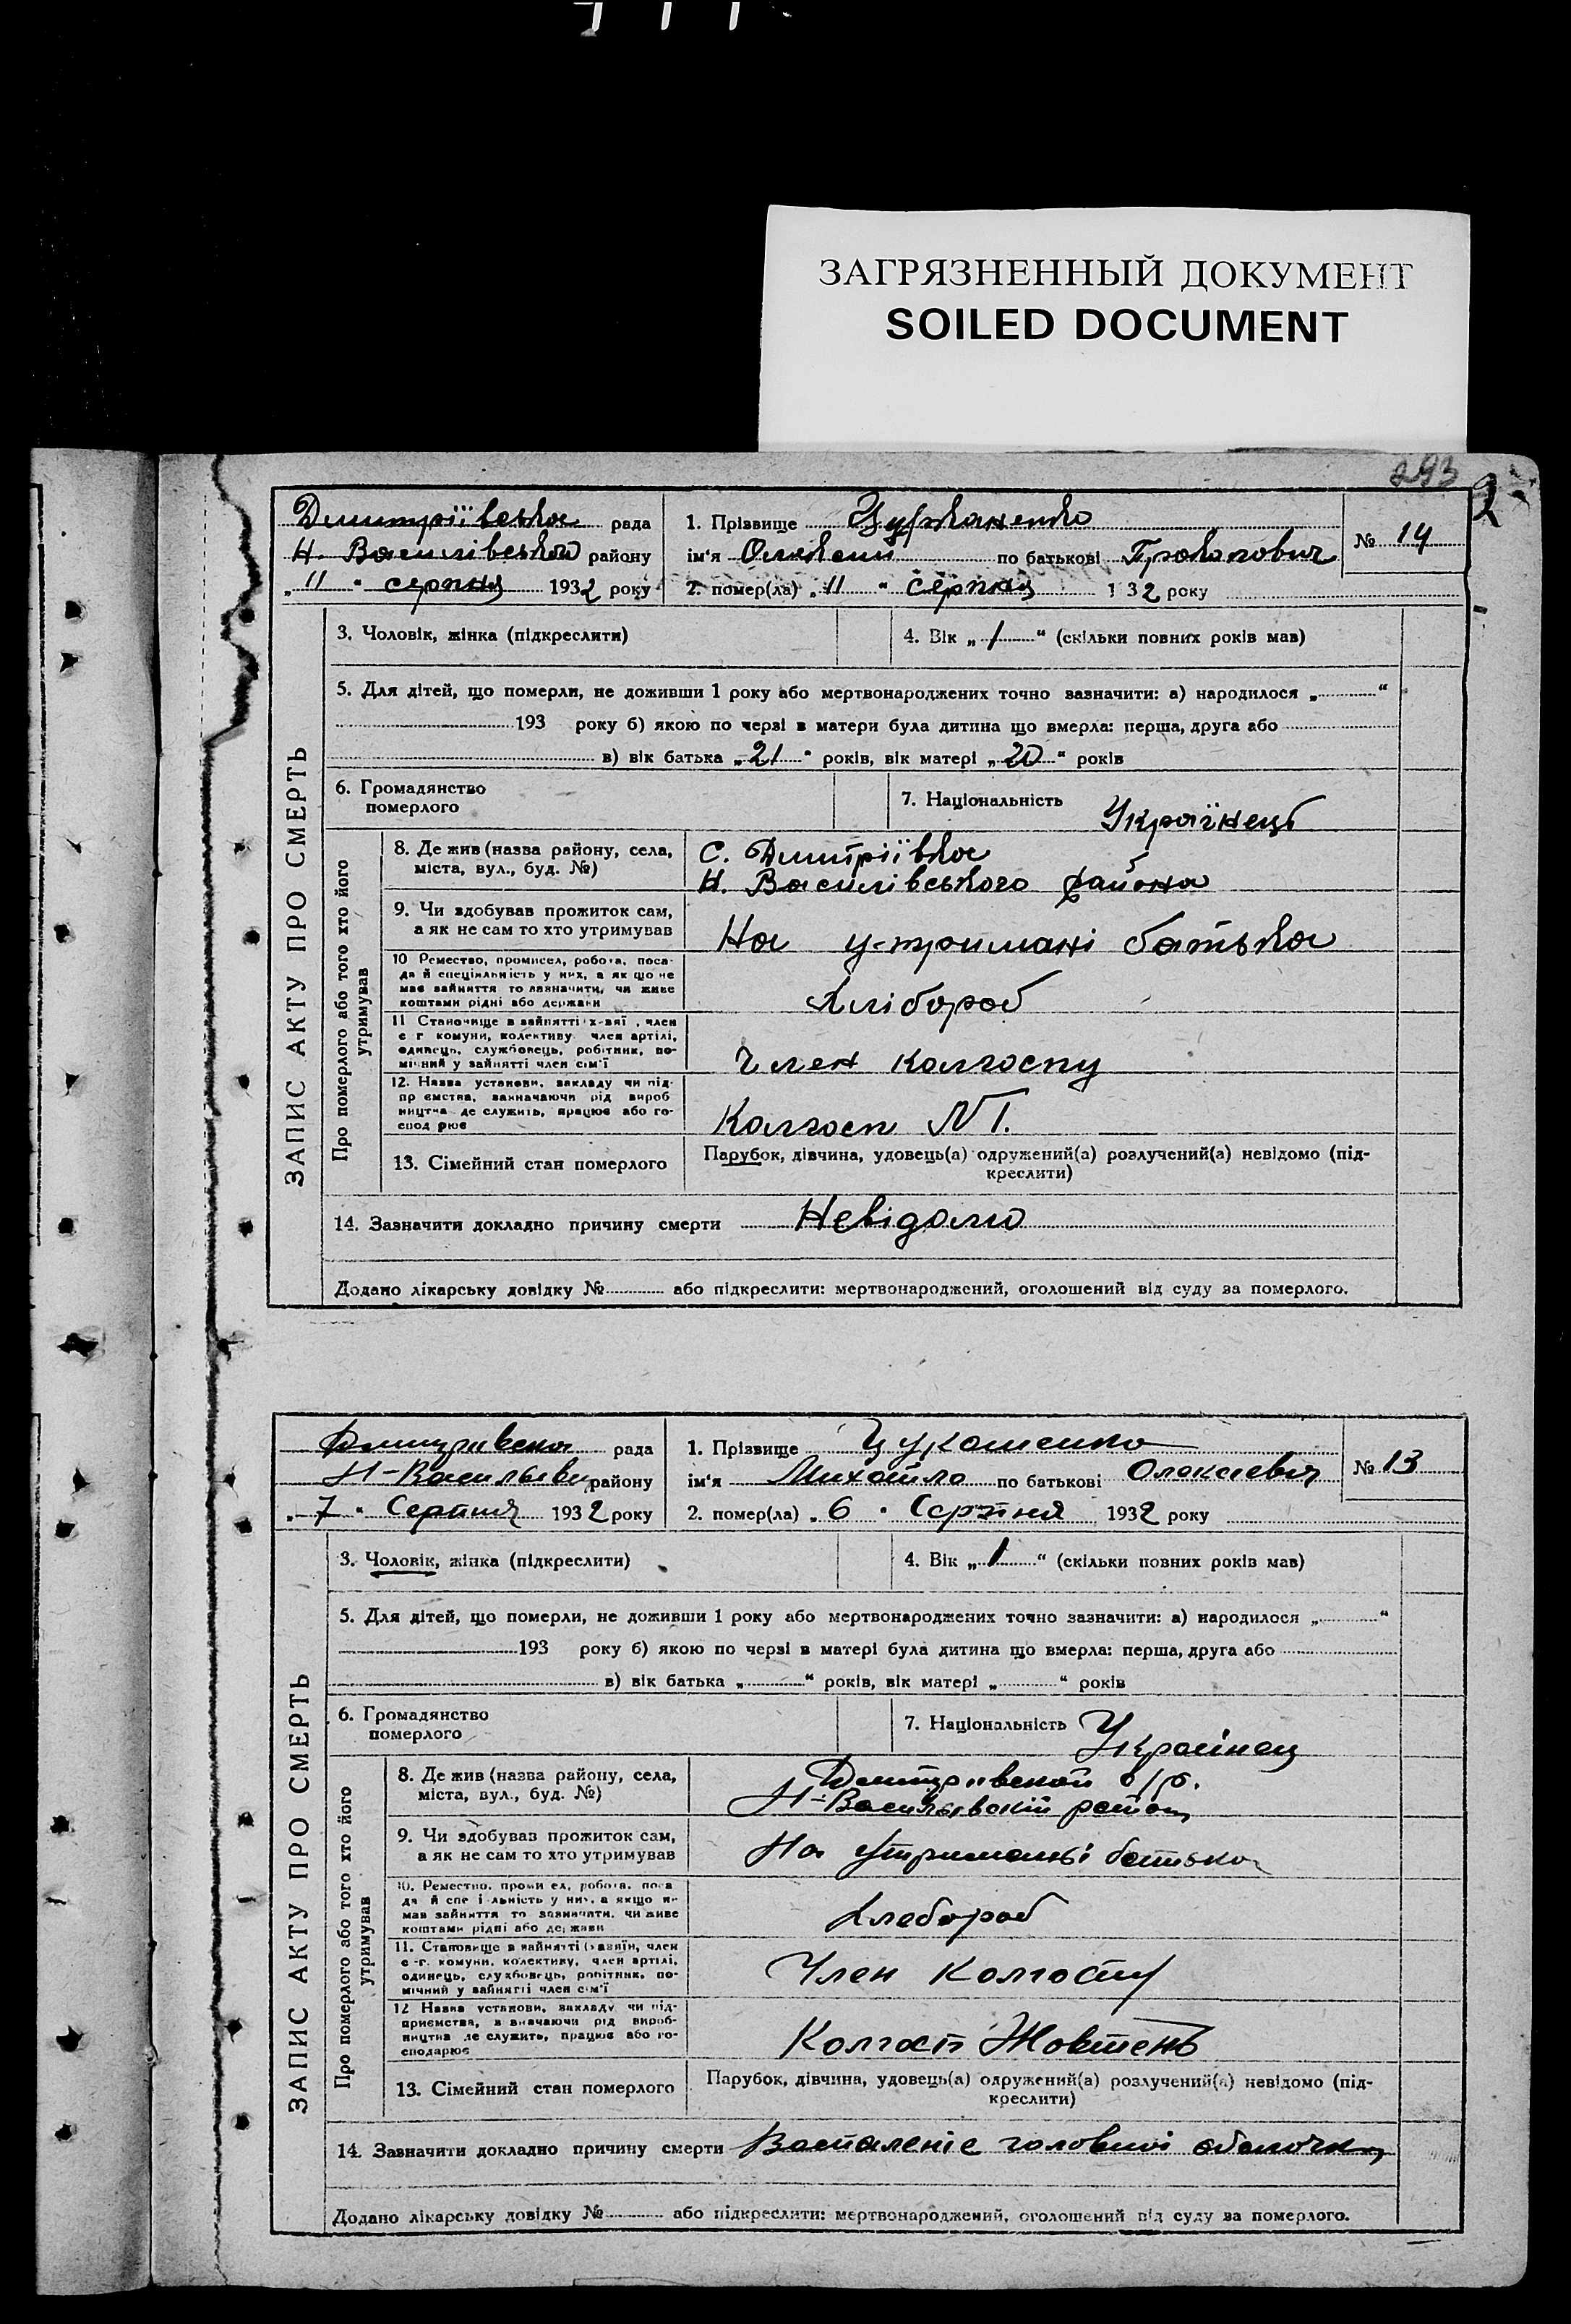 ЗАГРЯЗНЕННЫЙ ДОКУМЕНТ
SOILED DOCUMENT
293
2
Дмитріївська рада
Н. Василівської району
„ 11 “ серпня 1932 року
1. Прізвище
ім‘я Олексій по батькові Прокопович
№ 14
2. помер(ла) „ 11 “ серпня 1 32 року
ЗАПИС АКТУ ПРО СМЕРТЬ
3. Чоловік, жінка (підкреслити)
4. Вік „ 1 “ (скільки повних років мав)
5. Для дітей, що померли, не доживши 1 року або мертвонароджених точно зазначити: а) народилося „ “
193 року б) якою по черзі в матери була дитина що вмерла: перша, друга або
в) вік батька „ 21 “ років, вік матері „ 20 “ років
6. Громадянство
померлого
7. Національність Українець
Про померлого або того хто його
утримував
8. Де жив (назва району, села,
міста, вул., буд. №)
С. Дмитріївка
Н. Василівського района
9. Чи здобував прожиток сам,
а як не сам то хто утримував
На у-тримані батька
10 Ремество, промисел, робота, поса-
да й спеціяльність у них, а як що не
має зайняття то зазначити, чи живе
коштами рідні або держави
Хлібороб
11 Становище в зайнятті х-вяї , член
с г комуни, колективу член артілі,
одинець, службовець, робітник, по-
мічний у зайнятті член сім'ї
Член колгоспу
12. Назва установи, закладу чи під-
пр ємства, зазначаючи рід вироб
ництва де служить, працює або го-
спод рює
Колгосп N 1.
13. Сімейний стан померлого
Парубок, дівчина, удовець(а) одружений(а) розлучений(а) невідомо (під-
креслити)
14. Зазначити докладно причину смерти Невідомо
Додано лікарську довідку № або підкреслити: мертвонароджений, оголошений від суду за померлого.
Дмитрівська рада
Н-Васильевк району
„ 7 “ Серпня 1932 року
1. Прізвище
ім‘я Михайло по батькові Олексіевич
№ 13
2. помер(ла) „ 6 “ Серпня 1932 року
ЗАПИС АКТУ ПРО СМЕРТЬ
3. Чоловік, жінка (підкреслити)
4. Вік „ 1 “ (скільки повних років мав)
5. Для дітей, що померли, не доживши 1 року або мертвонароджених точно зазначити: а) народилося „ “
193 року б) якою по черзі в матері була дитина що вмерла: перша, друга або
в) вік батька „ “ років, вік матері „ “ років
6. Громадянство
померлого
7. Національність Українец
Про померлого або того хто його
утримував
8. Де жив (назва району, села,
міста, вул., буд. №)
Дмитрівской с/р.
Н-Васильвский район
9. Чи здобував прожиток сам,
а як не сам то хто утримував
На утриманьі батька
10. Ремество, проми ел, робота, поса
да й спе і льність у них, а якщо н-
має зайняття то зазначити, чи живе
коштами рідні або держави
Хлебороб
11. Становище в зайнятті (хазяїн, член
с -г. комуни, колективу, член артілі,
одинець, службовець, робітник, по-
мічний у зайнятті член сім'ї
Член Колгоспу
12 Назва установи, закладу чи під-
приємства, з значаючи рід вироб-
ництва де служить, працює або го-
сподарює
Колгосп Жовтень
13. Сімейний стан померлого
Парубок, дівчина, удовець(а) одружений(а) розлучений(а) невідомо (під-
креслити)
14. Зазначити докладно причину смерти Воспаленіе головної оболочки
Додано лікарську довідку № або підкреслити: мертвонароджений, оголошений від суду за померлого.